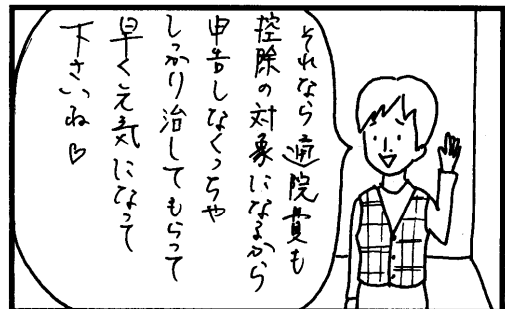 それなら通院費も
控除の対象になるから
申告しなくっちゃ
しっかり治してもらって
早く元気になって
下さいね♡